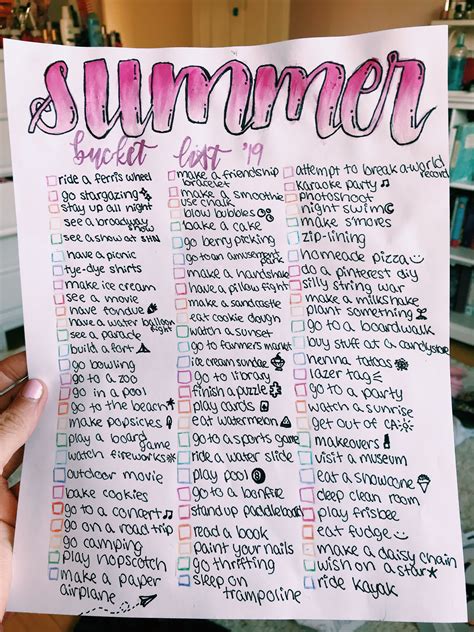 summer
bucket list '19
ride a ferris wheel
go stargazing
stay up all night
see a broadway show
see a show at SHN
have a picnic
tye-dye shirts
make ice cream
see a movie
have fondue
have a water balloon fight
see a parade
build a fort
go bowling
go to a zoo
go in a pool
go to the beach
make popsicles
play a board game
watch fireworks
outdoor movie
bake cookies
go to a concert
go on a road trip
go camping
play hopscotch
make a paper airplane
make a friendship bracelet
make a smoothie
use chalk
blow bubbles
bake a cake
go berry picking
go to an amusement park
make a handshake
have a pillow fight
make a sandcastle
eat cookie dough
watch a sunset
go to farmers market
ice cream sundae
go to library
finish a puzzle
play cards
eat watermelon
go to a sports game
ride a water slide
play pool
go to a bonfire
stand up paddleboard
read a book
paint your nails
go thrifting
sleep on trampoline
attempt to break a world record
karaoke party
photoshoot
night swim
make s'mores
zip-lining
homemade pizza
do a pinterest diy
silly string war
make a milkshake
plant something
go to a boardwalk
buy stuff at a candystore
henna tatoos
lazer tag
go to a party
watch a sunrise
get out of CA
makeovers
visit a museum
eat a snowcone
deep clean room
play frisbee
eat fudge
make a daisy chain
wish on a star
ride kayak